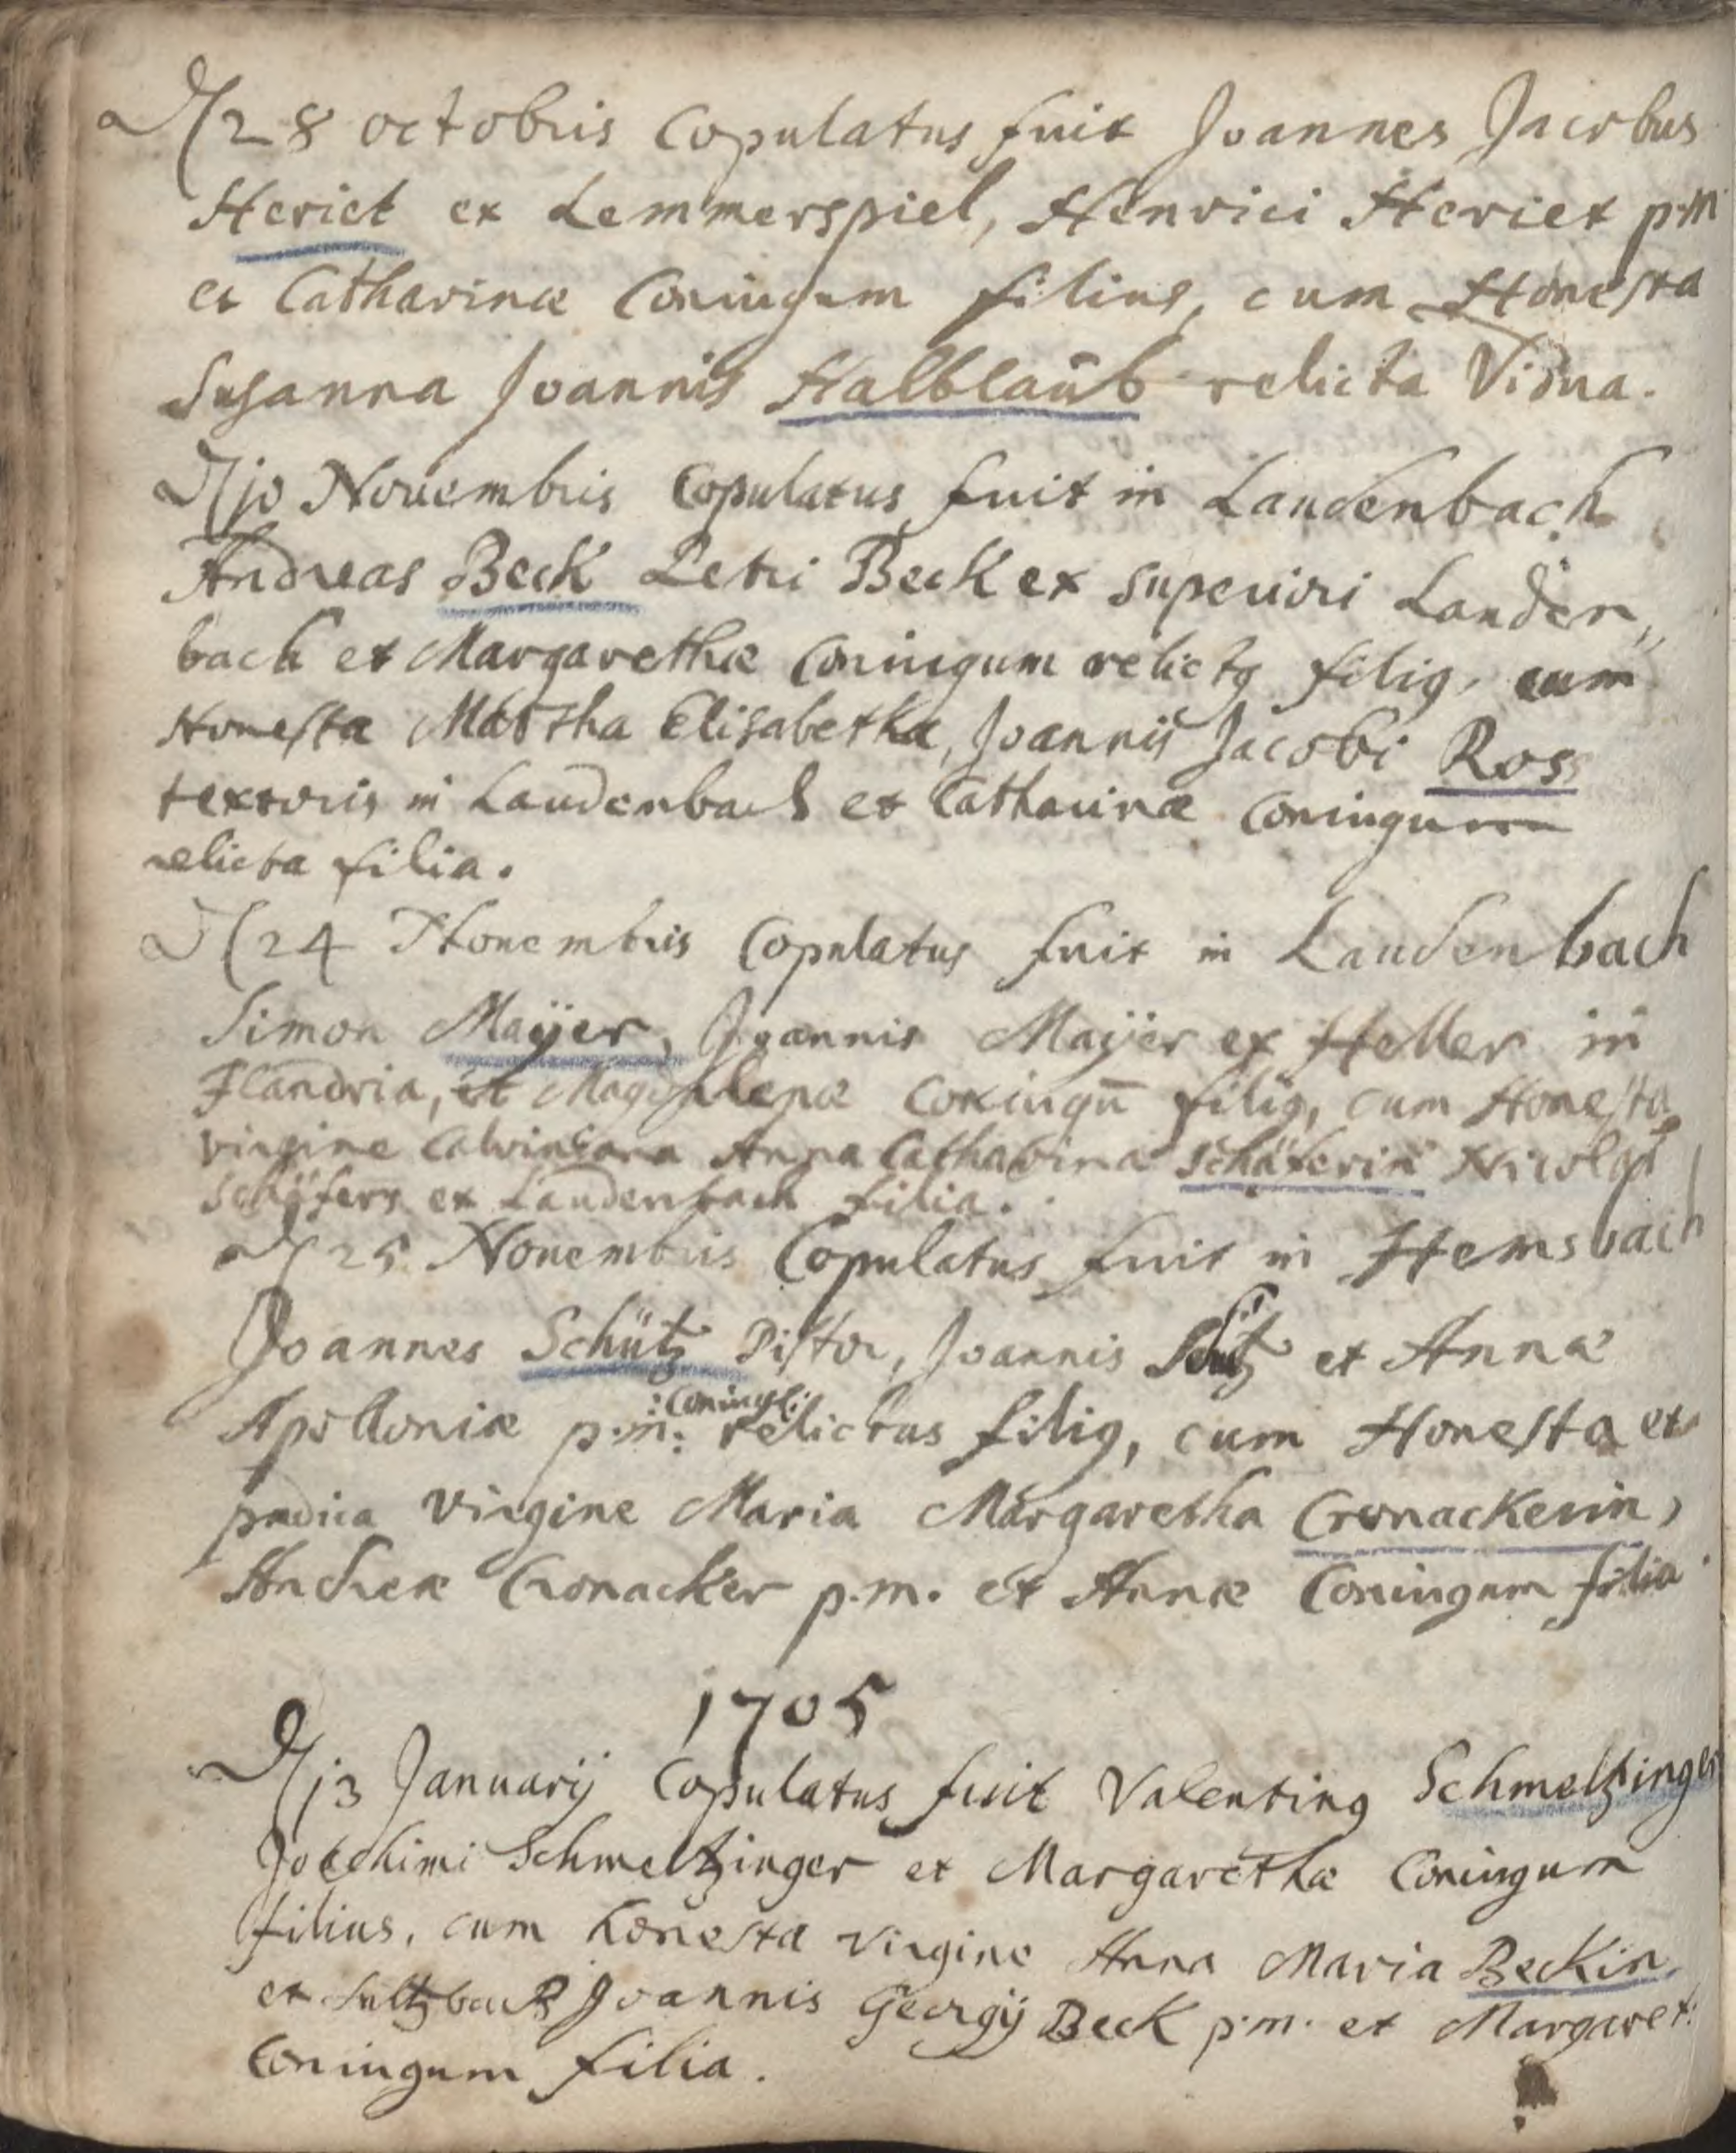 D 28 octobris Copulatus fuit Joannes Jacobus
Heriet ex Lemmerspiel, Henrici Heriet p.m
et Catharinæ Coniugum filius, cum Honesta
Susanna Joannis Halblaŭb relicta Vidua.
D 10 Nouembris Copulatus fuit in Laudenbach
Andreas Beck Petri Beck ex superiori Lauden„
bach et Margarethæ Coniugum relictꝰ filiꝰ, cum
Honesta Martha Elisabetha, Joannis Jacobi Ros
textoris in Laudenbach et Catharinæ Coniugum
relicta filia.
D 24 Nouembris Copulatus fuit in Laudenbach
Simon Maÿer, Joannis Maÿer ex Heller in
Flandria, et Magdalenæ Coniugū filiꝰ, cum Honesta
virgine Calviniana Anna Catharina Schäferin Nicolai
Schäfers ex Laudenbach filia.
D 25 Nouembris Copulatus fuit in Hemsbach
Joannes Schütz Pistor, Joannis Schütz et Annæ
Apolloniæ p.m: :Coniug: relictus filiꝰ, cum Honesta et
pudica virgine Maria Margaretha Cronackerin,
Andreæ Cronacker p.m. et Annæ Coniugum filia.
1705
D 13 Januarij Copulatus fuit Valentinꝰ Schmeltzinger
Joachimi Schmeltzinger et Margarethæ Coniugum
filius, cum honesta virgine Anna Maria Beckin,
ex Sultzbach Joannis Georgij Beck p.m. et Margaret:
Coniugum filia.